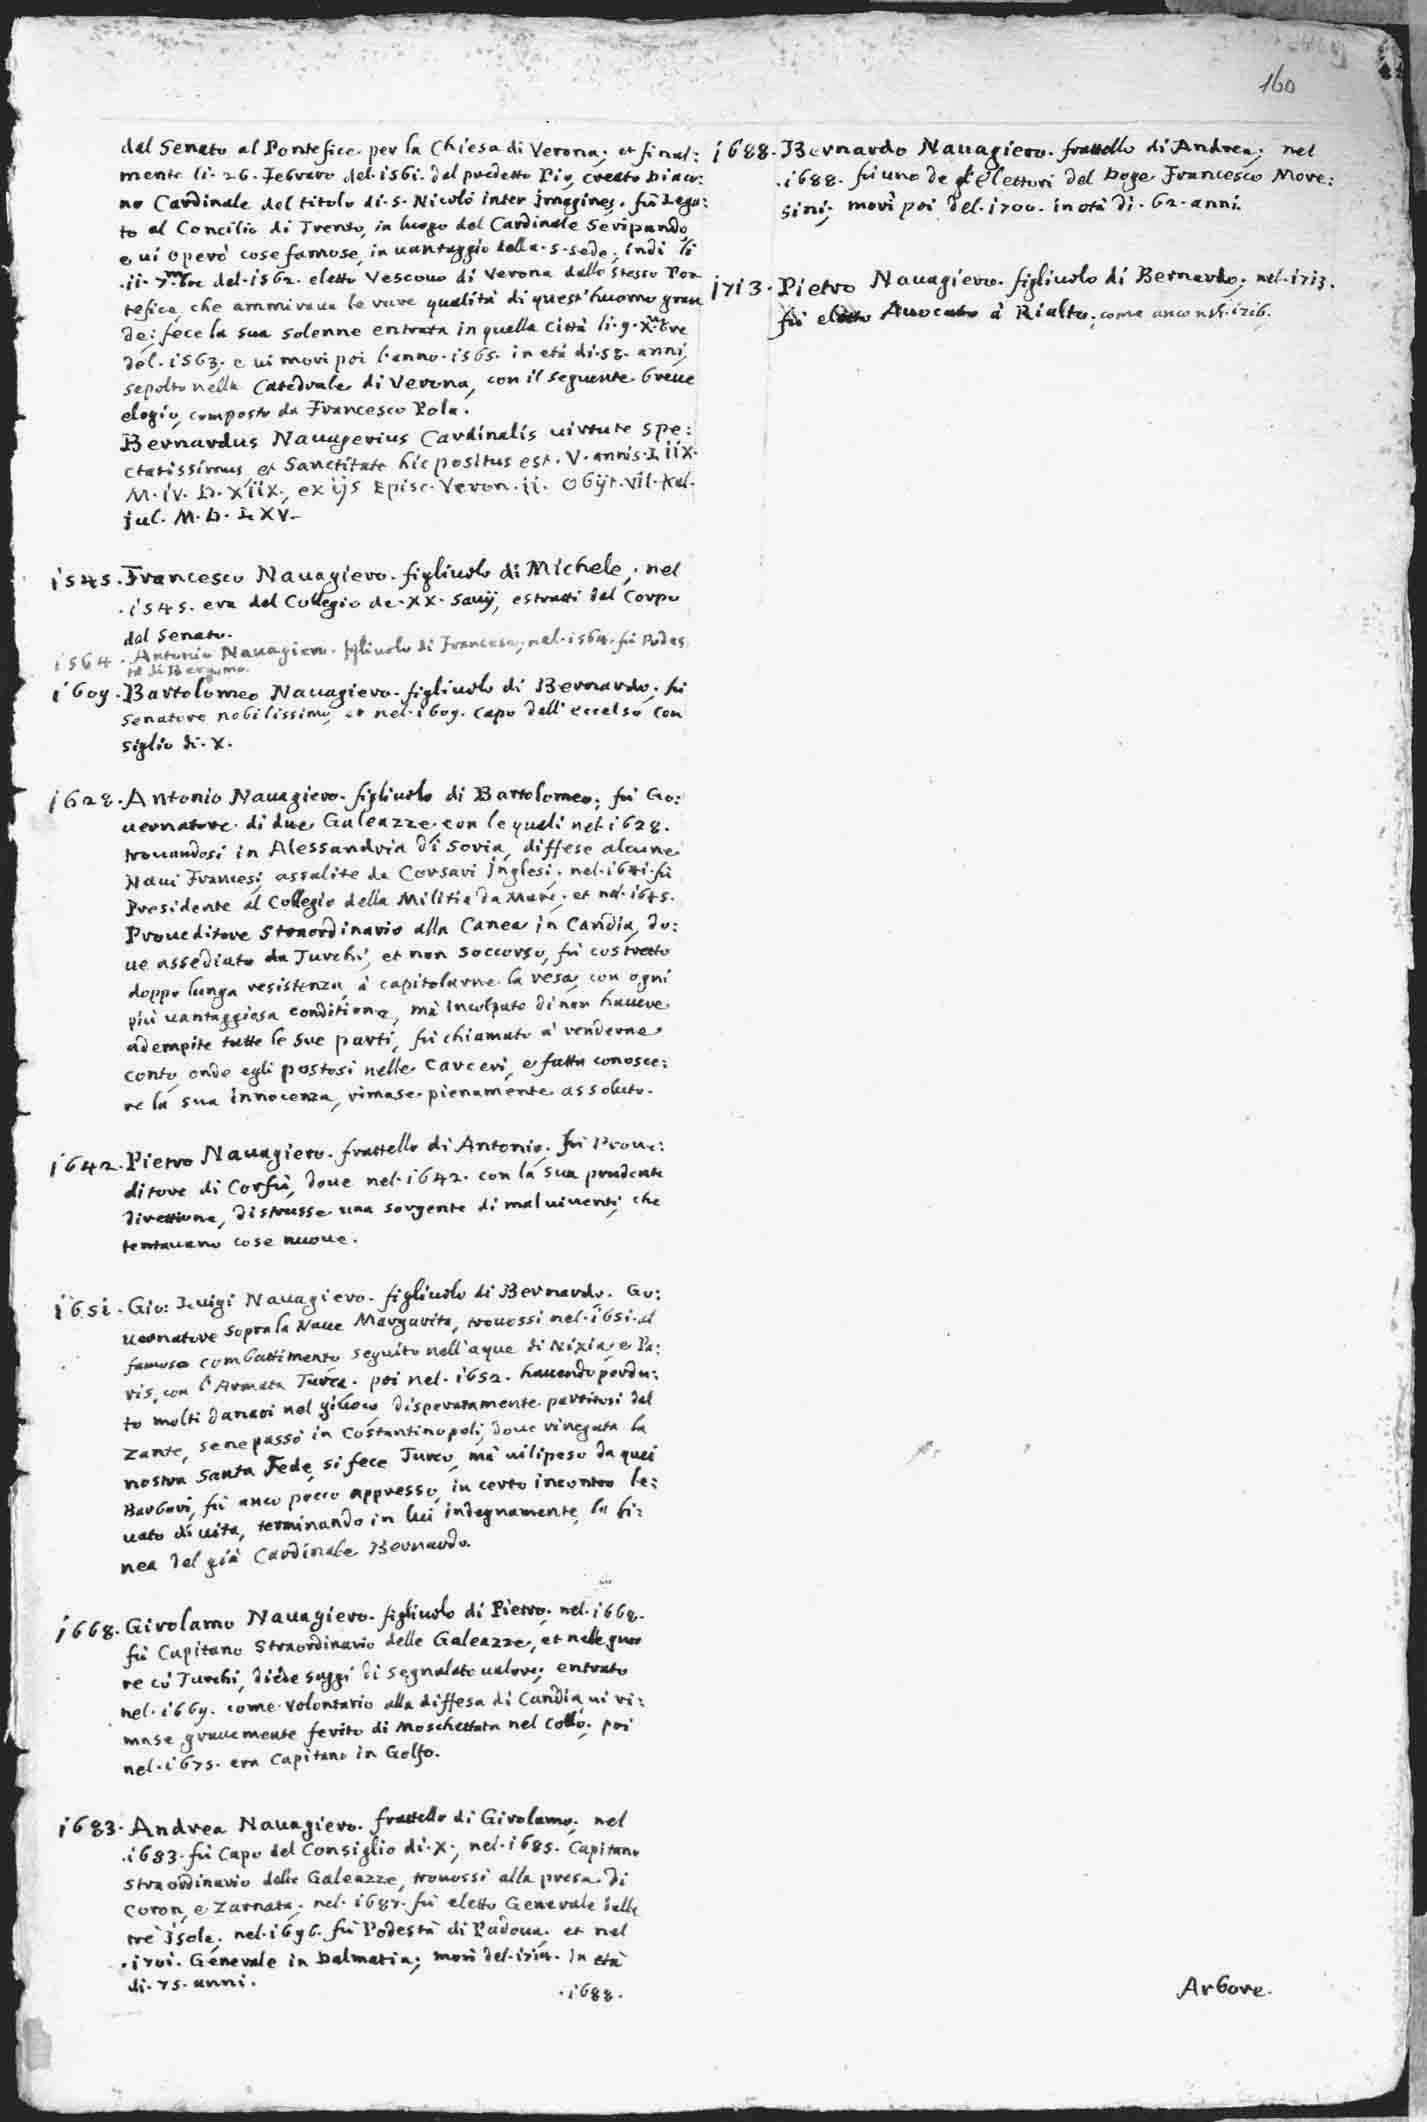 160
dal Senato al Pontefice per la Chiesa di Verona; et final:
mente li. 26. Febraro del. 1561. dal predetto Pio, creato Diaco:
no Cardinale del titolo di. S. Nicolò inter imagines. fù Lega:
to al Concilio di Trento, in luogo del Cardinale Seripando,
e ui operò cose famose, in uantaggio della. S. Sede; indi li
.ii. 7mbre del. 1562. eletto Vescouo di Verona dallo stesso Pon
tefice, che ammiraua le rare qualità di quest'huomo gran
de; fece la sua solenne entrata in quella Città li. 9. Xmbre
del. 1563. e ui morì poi l'anno. 1565. in età di. 58. anni,
sepolto nella Catedrale di Verona, con il seguente breue
elogio, composto da Francesco Pola.
Bernardus Naugerius Cardinalis uirtute spe:
ctatissimus et Sanctitate hic positus est. V. annis. LiiX.
M. iv. D. Xiix., ex ijs Episc. Veron. ii. Obijt. vii. Kal.
jul. M. D. LXV.
1545. Francesco Nauagiero. figliuolo di Michele, nel
.1545. era del Collegio de. XX. Sauij, estratti dal Corpo
del Senato.
1564. Antonio Nauagiero. figliuolo di Francesco, nel. 1564. fù Podes
tà di Bergamo.
1609. Bartolomeo Nauagiero. figliuolo di Bernardo, fù
Senatore nobilissimo, et nel. 1609. Capo dell'eccelso Con
siglio di. X.
1628. Antonio Nauagiero. figliuolo di Bartolomeo; fù Go:
uernatore di due Galeazze, con le quali nel. 1628.
trouandosi in Alessandria di Soria, diffese alcune
Naui Francesi, assalite da Corsari Inglesi. nel. 1641. fù
Presidente al Collegio della Militia da Mare; et nel. 1645.
Proueditore Straordinario alla Canea in Candia, do:
ue assediato da Turchi, et non soccorso, fù costretto
doppo lunga resistenza, à capitolarne la resa, con ogni
più uantaggiosa conditione, mà incolpato di non hauere
adempite tutte le sue parti, fù chiamato à renderne
conto, onde egli postosi nelle carceri, e fatta conosce:
re la sua innocenza, rimase pienamente assoluto.
1642. Pietro Nauagiero. frattello di Antonio. fù Proue:
ditore di Corfù, doue nel. 1642. con la sua prudente
direttione, distrusse una sorgente di maluiuenti, che
tentauano cose nuoue.
1651. Gio: Luigi Nauagiero. figliuolo di Bernardo. Go:
uernatore sopra la Naue Margarita, trouossi nel. 1651. al
famoso combattimento seguito nell'aque di Nixia, e Pa:
ris, con l'Armata Turca. poi nel. 1652. hauendo perdu:
to molti danari nel giuoco, disperatamente partitosi dal
Zante, sene passò in Costantinopoli, doue rinegata la
nostra Santa Fede, si fece Turco, mà uilipeso da quei
Barbari, fù anco pocco appresso, in certo incontro le:
uato di uita, terminando in lui indegnamente, la li:
nea del già Cardinale Bernardo.
1668. Girolamo Nauagiero. figliuolo di Pietro. nel. 1668.
fù Capitano Straordinario delle Galeazze, et nelle guer
re có Turchi, diede saggi di segnalato ualore; entrato
nel. 1669. come Volontario alla diffesa di Candia, ui ri:
mase grauemente ferito di Moschettata nel Collo. poi
nel. 1675. era Capitano in Golfo.
1683. Andrea Nauagiero. frattello di Girolamo; nel
.1683. fù Capo del Consiglio di. X.; nel. 1685. Capitano
straordinario delle Galeazze, trouossi alla presa di
Coron, e Zarnata; nel. 1687. fù eletto Generale delle
trè Isole. nel. 1696. fù Podestà di Padoua. et nel
.1701. Generale in Dalmatia; morì del. in età
di. 75. anni.
.1688.
1688. Bernardo Nauagiero. frattello di Andrea; nel
.1688. fù uno de gl'Elettori del Doge Francesco More:
sini; morì poi del. 1700. in età di. 62. anni.
1713. Pietro Nauagiero. figliuolo di Bernardo; nel. 1713.
fù eletto Auocato à Rialto, come anco nel. 1716.
Arbore.